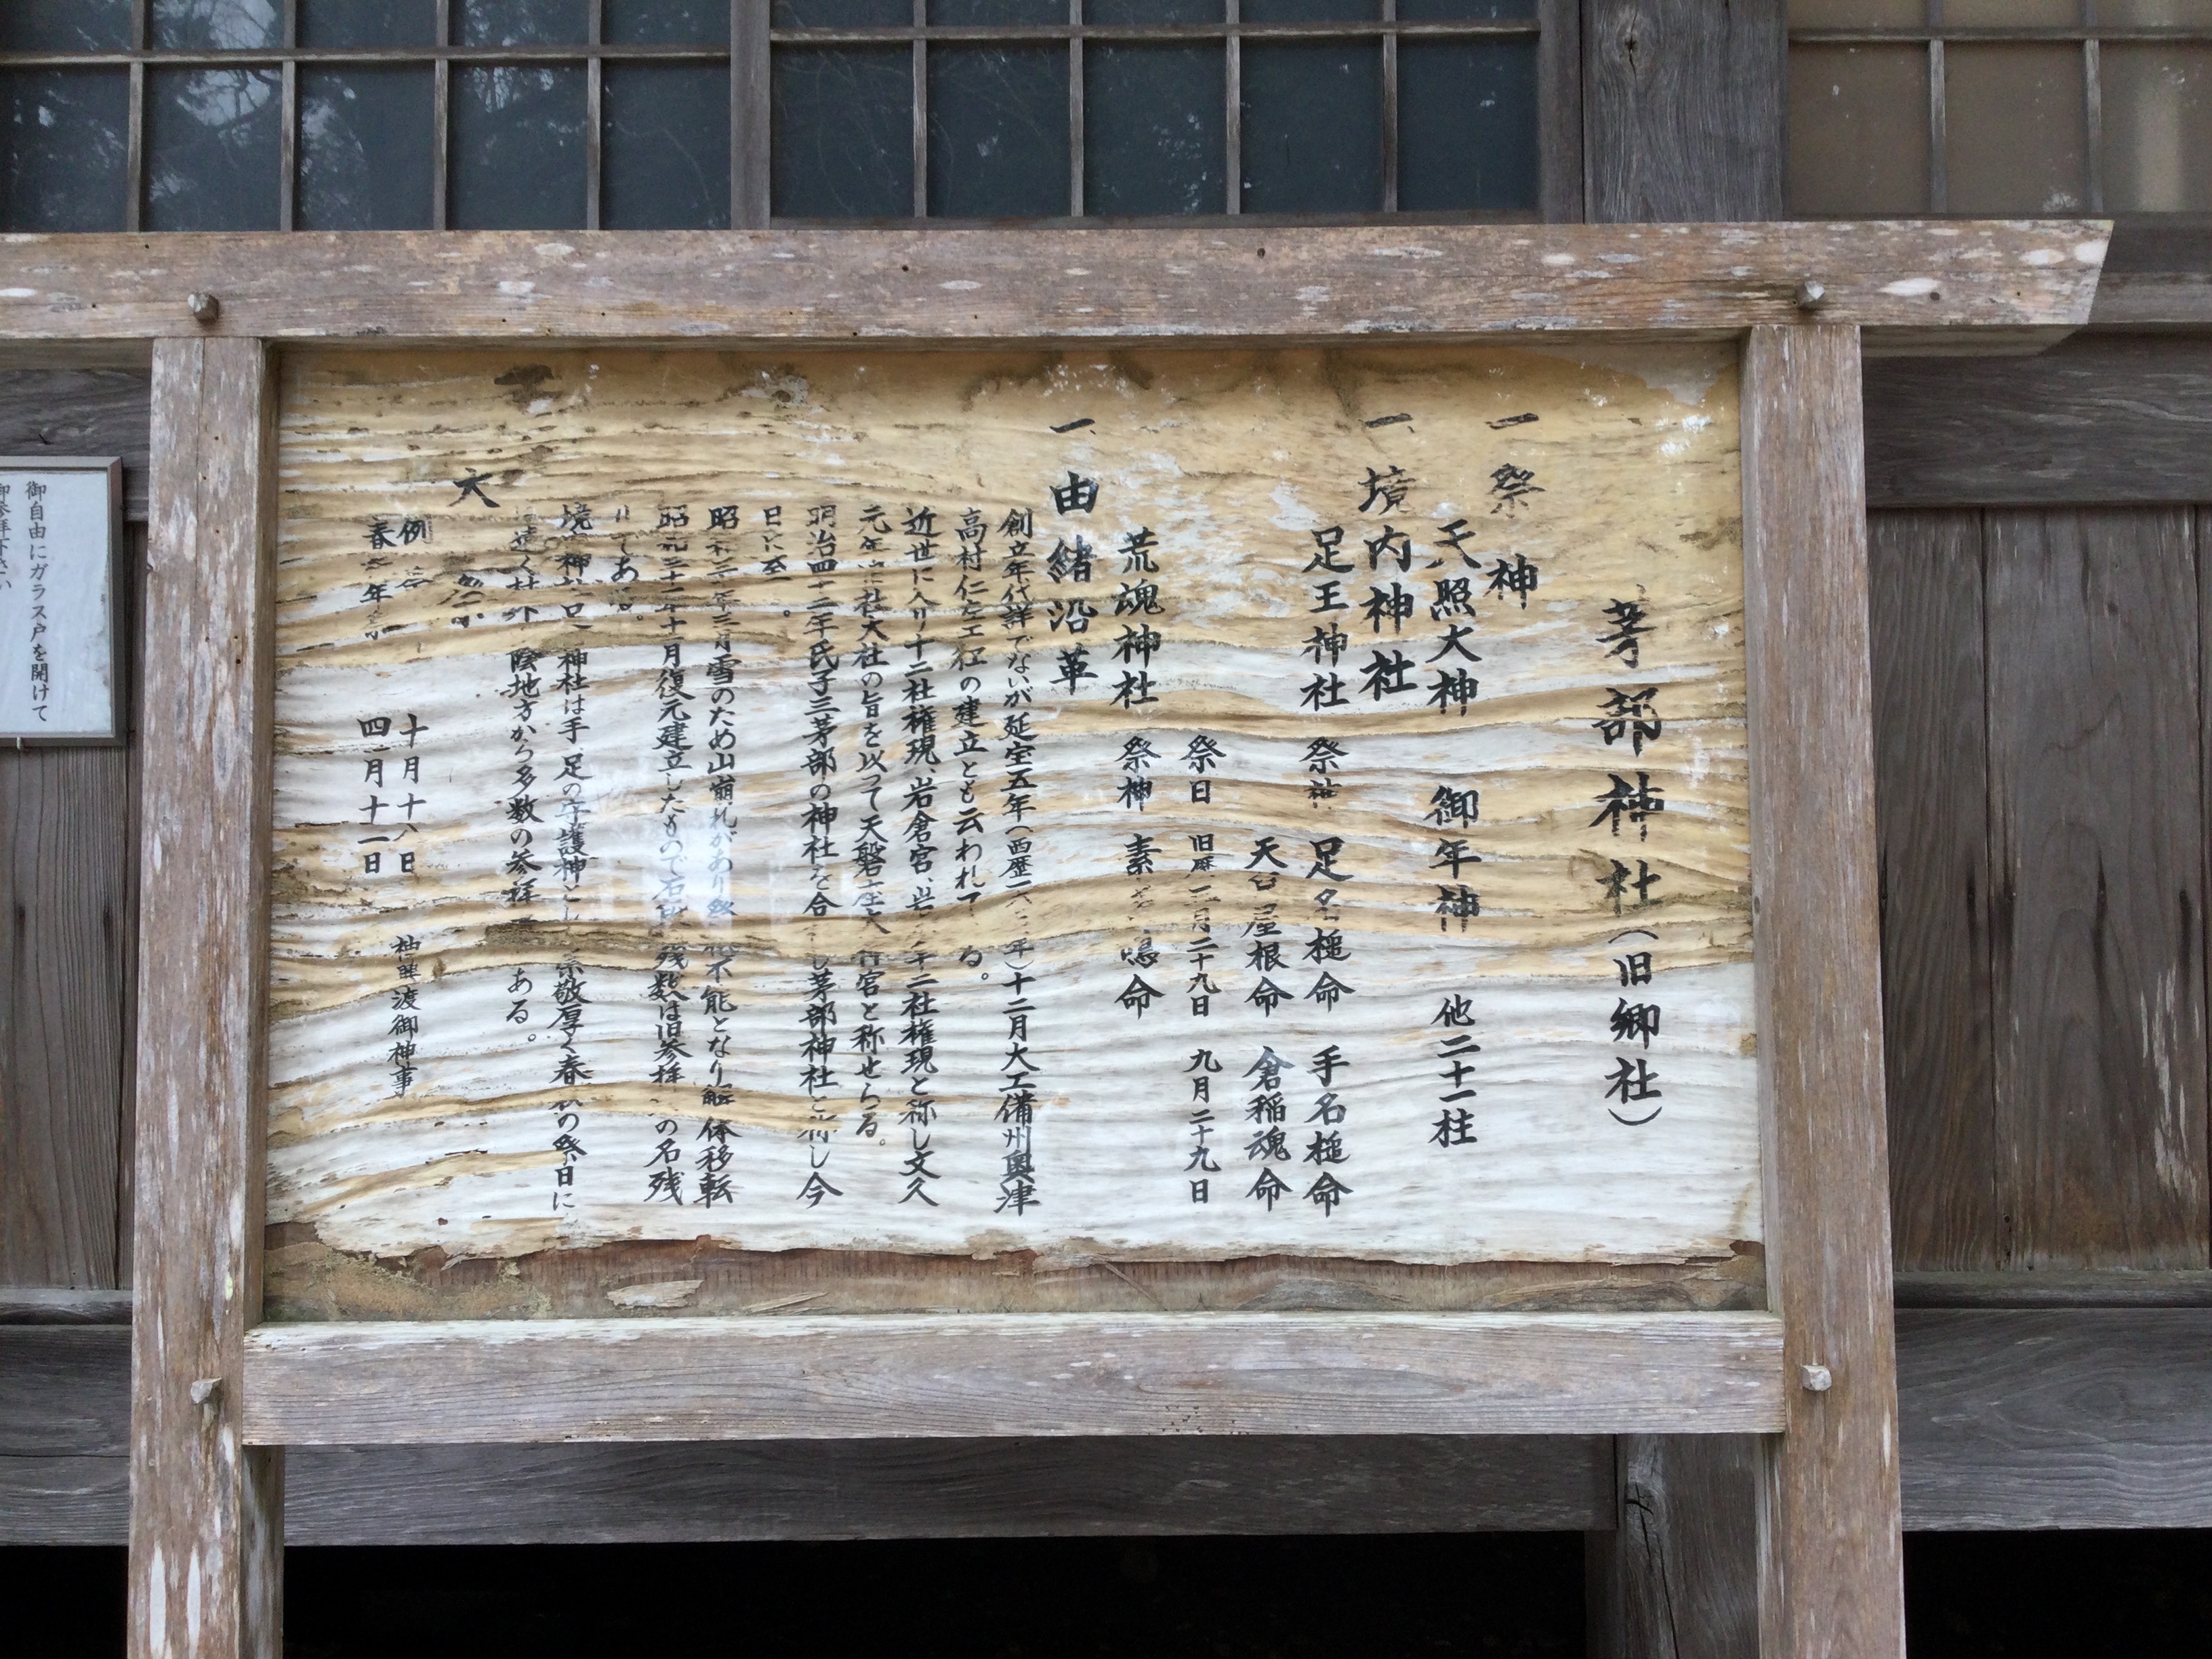 茅部神社(旧郷社)
一 祭神
天照大神 御年神 他二十一柱
一 境内神社
足王神社 祭神 足名槌命 手名槌命
天 屋根命 倉稲魂命
祭日 旧暦三月二十九日 九月二十九日
荒魂神社 祭神 素 嗚命
一 由緒沿革
創立年代詳でないが延宝五年(西暦一六 年)十二月大工備州奥津
高村仁左工 の建立とも云われて る。
近世に入り十二社権現、岩倉宮、 十二社権現と称し文久
元年 社大社の旨を以って天磐座大 宮と称せらる。
明治四十二年氏子三茅部の神社を合 し茅部神社と称し今
日に至 。
昭和 年三月雪のため山崩れがあり 不能となり解体移転
昭和三十二年十月復元建立したもので石 残数は旧参拝 の名残
りである。
境内神社 神社は手、足の守護神とし 崇敬厚く春秋の祭日に
遠く 陰地方から多数の参拝 ある。
大
例 十月十八日 神輿渡御神事
春 年 四月十一日
御自由にガラス戸を開けて
御参拝下さい